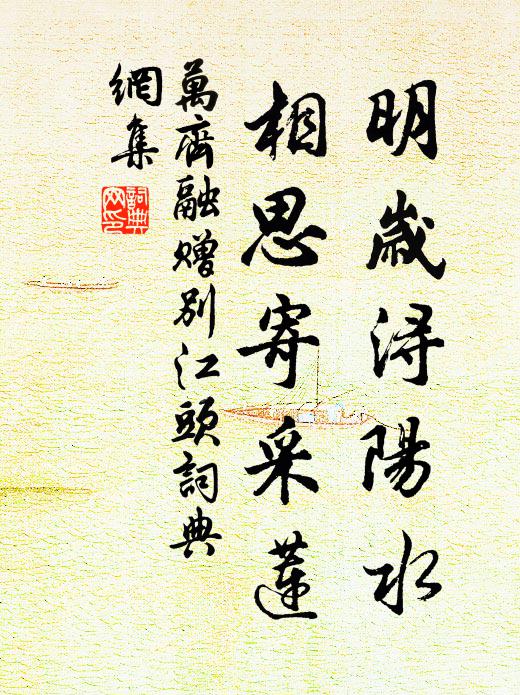 明歲潯陽水
相思寄采蓮
萬齊融贈別江頭詞典
網集
詞典
网印